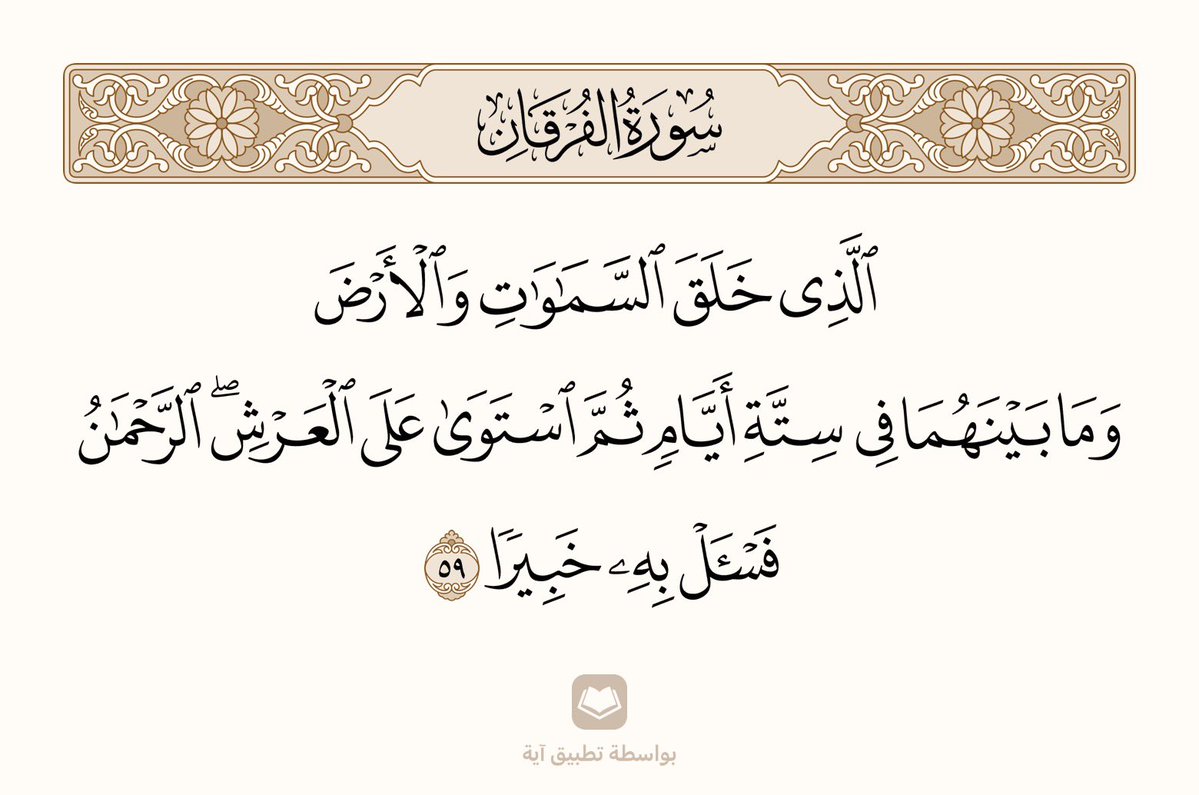 سُورَةُ الفُرۡقَانِ
ٱلَّذِى خَلَقَ ٱلسَّمَـٰوَٰتِ وَٱلۡأَرۡضَ
وَمَا بَيۡنَهُمَا فِى سِتَّةِ أَيَّامٍ ثُمَّ ٱسۡتَوَىٰ عَلَى ٱلۡعَرۡشِۖ ٱلرَّحۡمَـٰنُ
فَسۡـَٔلۡ بِهِۦ خَبِيرًا ٥٩
بواسطة تطبيق آية